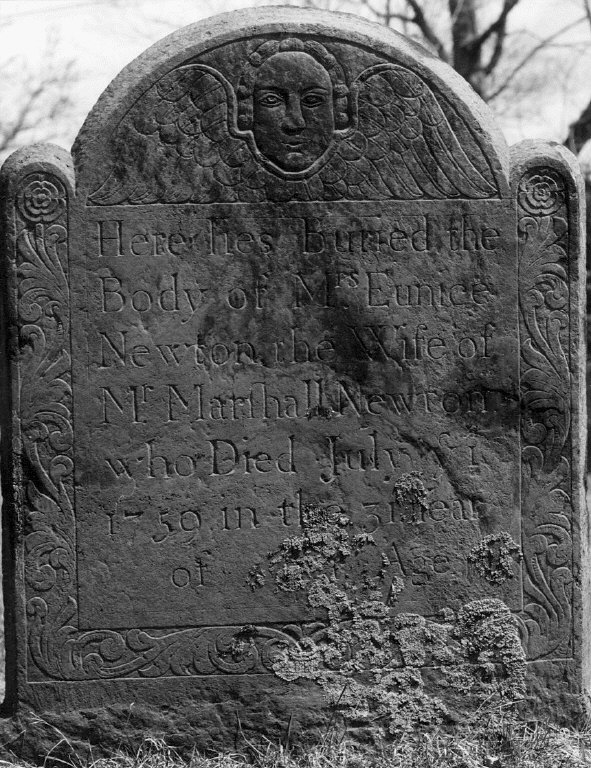 Here lies Buried the
Body of Mrs Eunice
Newton the Wife of
Mr Marſhall Newton
who Died July
1759 in the 31 Year
of Age